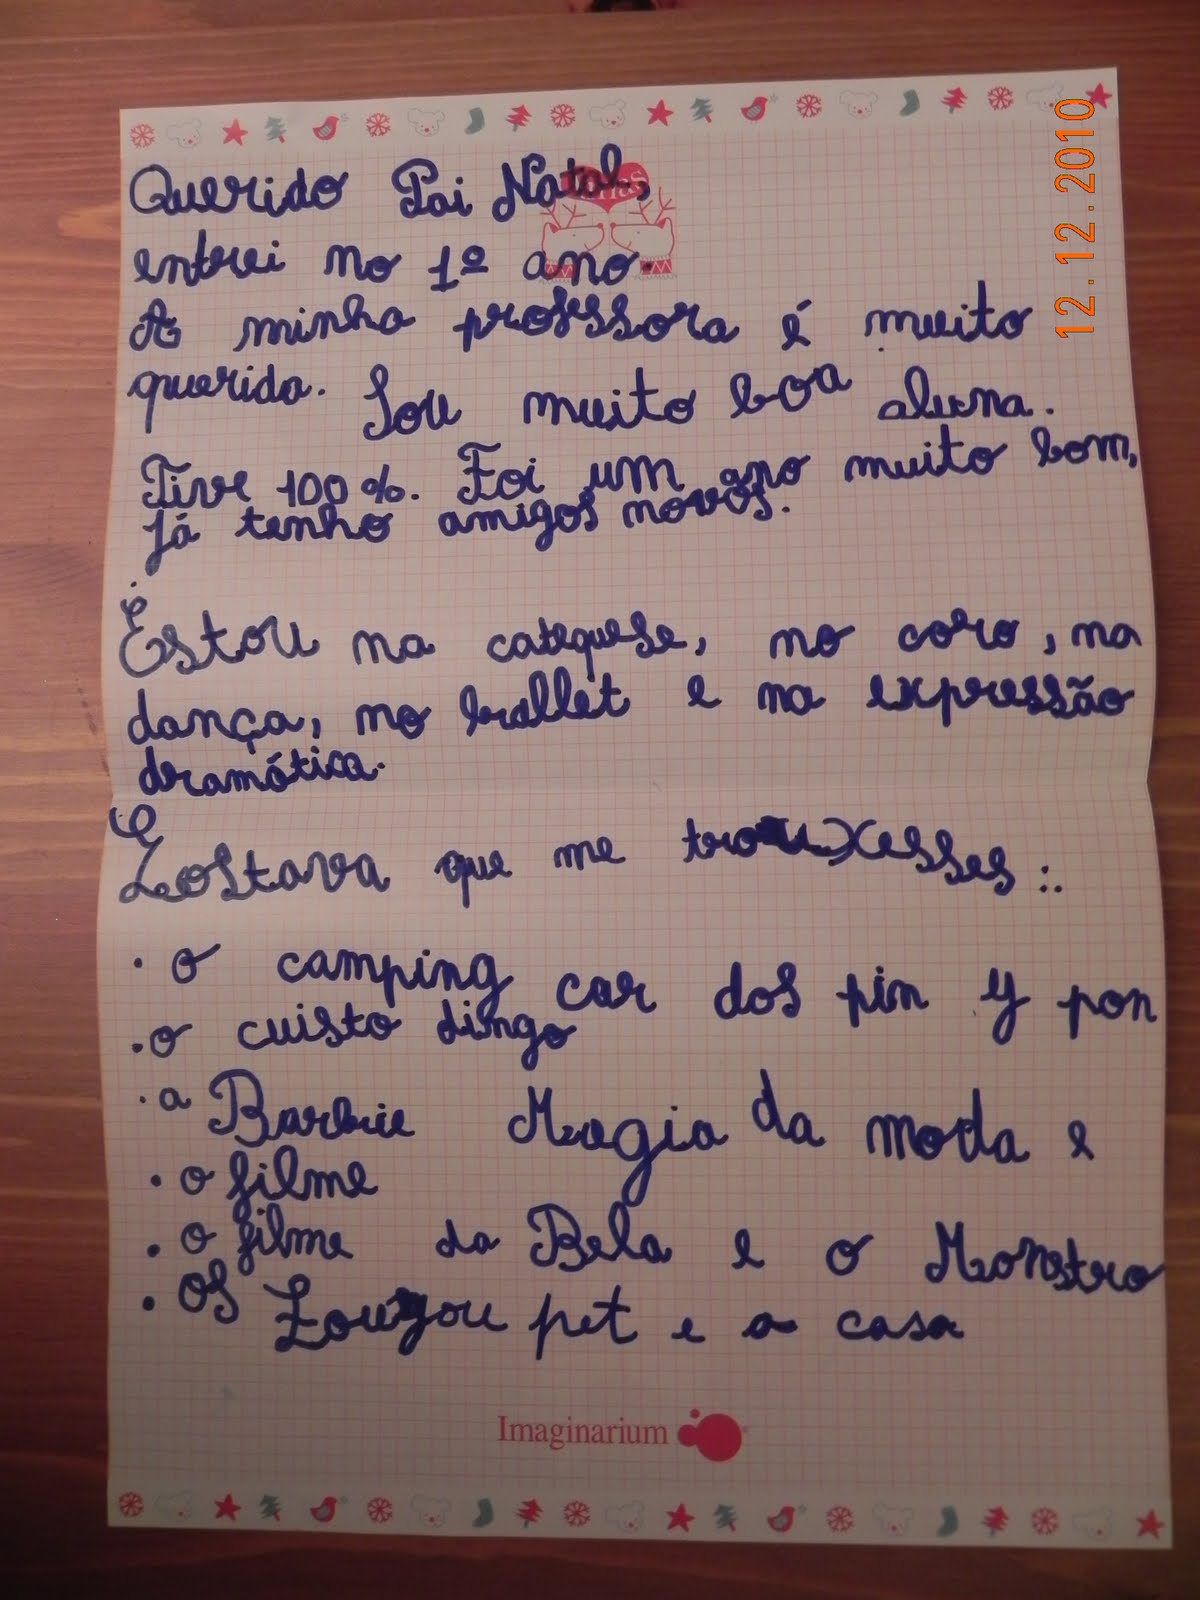 Querido Pai Natal,
entrei no 1º ano.
A minha professora é muito
querida. Sou muito boa aluna.
Tive 100%. Foi um ano muito bom,
já tenho amigos novos.
Estou na catequese, no coro, na
dança, no ballet e na expressão
dramática.
Gostava que me trouxesses:
. o camping car dos pin y pon
. o cuisto dingo
. a Barbie Magia da moda e
. o filme
. o filme da Bela e o Monstro
. os pet e a casa
Imaginarium
12.12.2010